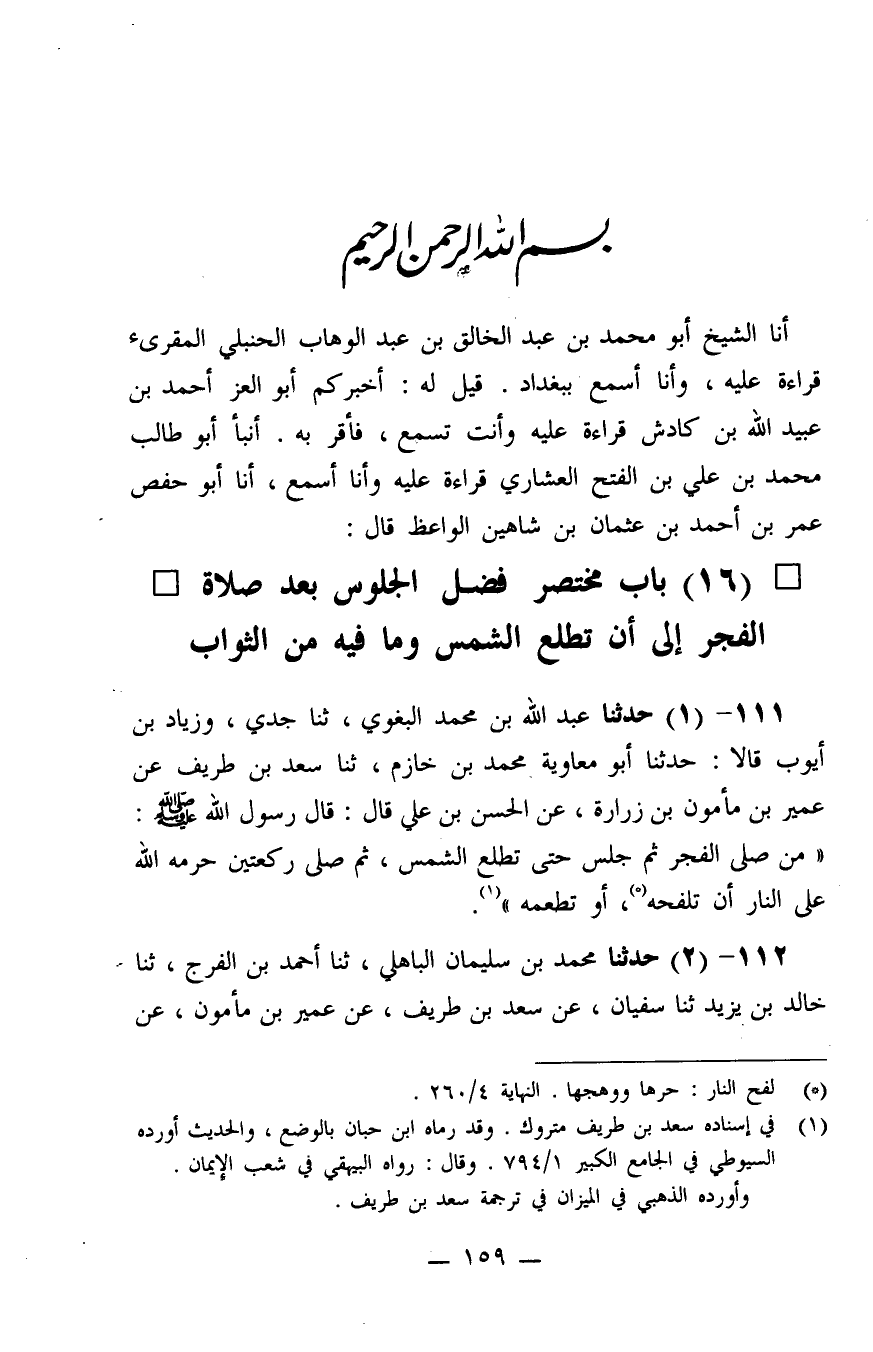 بسم الله الرحمن الرحيم
أنا الشيخ أبو محمد بن عبد الخالق بن عبد الوهاب الحنبلي المقرىء
قراءة عليه ، وأنا أسمع ببغداد . قيل له : أخبركم أبو العز أحمد بن
عبيد الله بن كادش قراءة عليه وأنت تسمع ، فأقر به . أنبأ أبو طالب
محمد بن علي بن الفتح العشاري قراءة عليه وأنا أسمع ، أنا أبو حفص
عمر بن أحمد بن عثمان بن شاهين الواعظ قال :
□ (١٦) باب مختصر فضل الجلوس بعد صلاة □
الفجر إلى أن تطلع الشمس وما فيه من الثواب
١١١- (١) حدثنا عبد الله بن محمد البغوي ، ثنا جدي ، وزياد بن
أيوب قالا : حدثنا أبو معاوية محمد بن خازم ، ثنا سعد بن طريف عن
عمير بن مأمون بن زرارة ، عن الحسن بن علي قال : قال رسول الله ﷺ :
« من صلى الفجر ثم جلس حتى تطلع الشمس ، ثم صلى ركعتين حرمه الله
على النار أن تلفحه(*)، أو تطعمه »(١).
١١٢- (٢) حدثنا محمد بن سليمان الباهلي ، ثنا أحمد بن الفرج ، ثنا
خالد بن يزيد ثنا سفيان ، عن سعد بن طريف ، عن عمير بن مأمون ، عن
(*) لفح النار : حرها ووهجها . النهاية ٢٦٠/٤ .
(١) في إسناده سعد بن طريف متروك . وقد رماه ابن حبان بالوضع ، والحديث أورده
السيوطي في الجامع الكبير ٧٩٤/١ . وقال : رواه البيهقي في شعب الإيمان .
وأورده الذهبي في الميزان في ترجمة سعد بن طريف .
— ١٥٩ —